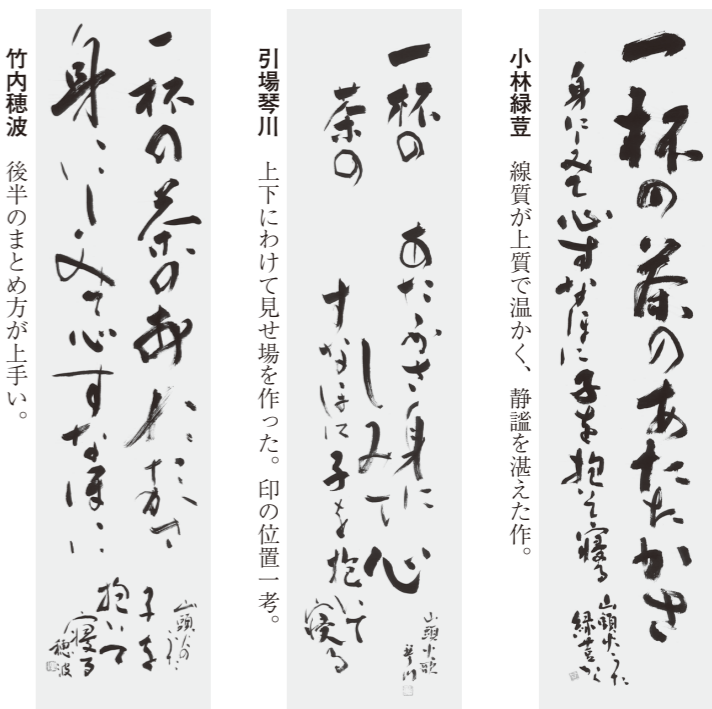 一杯の茶のあたたかさ
身にしみて心すなほに子を抱いて寝る
山頭火うた
緑荳かく
小林緑荳　線質が上質で温かく、静謐を湛えた作。
一杯の
茶の
あたゝかさ身に
しみて心
すなほに子を抱いて
寝る
山頭火歌
琴川
引場琴川　上下にわけて見せ場を作った。印の位置一考。
一杯の茶のあたたかさ
身にしみて心すなほに
子を
抱いて
寝る
山頭火の
うた
穂波
竹内穂波　後半のまとめ方が上手い。